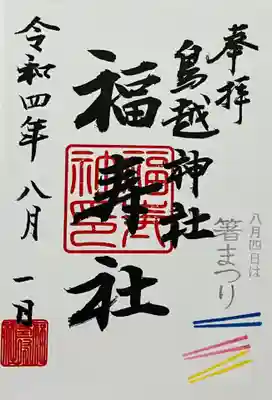 奉拝
鳥越神社
福寿社
令和四年 八月 一日
八月四日は
箸まつり